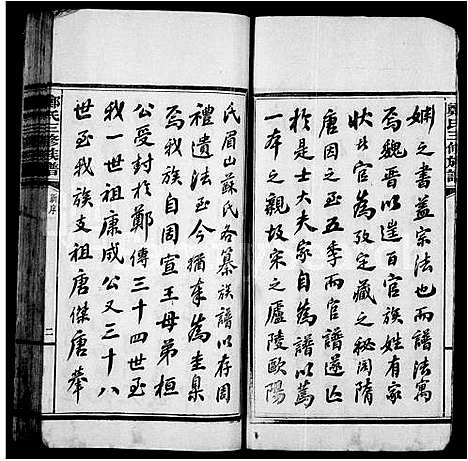 鄭氏三修族譜
婣之書蓋宗法也而譜法寓
焉魏晉以還百官族姓有家
狀北官為攷定藏之秘閣隋
唐因之五季而官譜遂亡
於是士大夫家自為譜以篤
一本之親故宋之廬陵歐陽
氏眉山蘇氏各纂族譜以存周
禮遺法至今猶奉為圭臬
焉我族自周宣王母弟桓
公受封於鄭傳三十四世至
我一世祖康成公又三十八
世至我族支祖唐傑唐
鄭氏三修族譜
新序
二